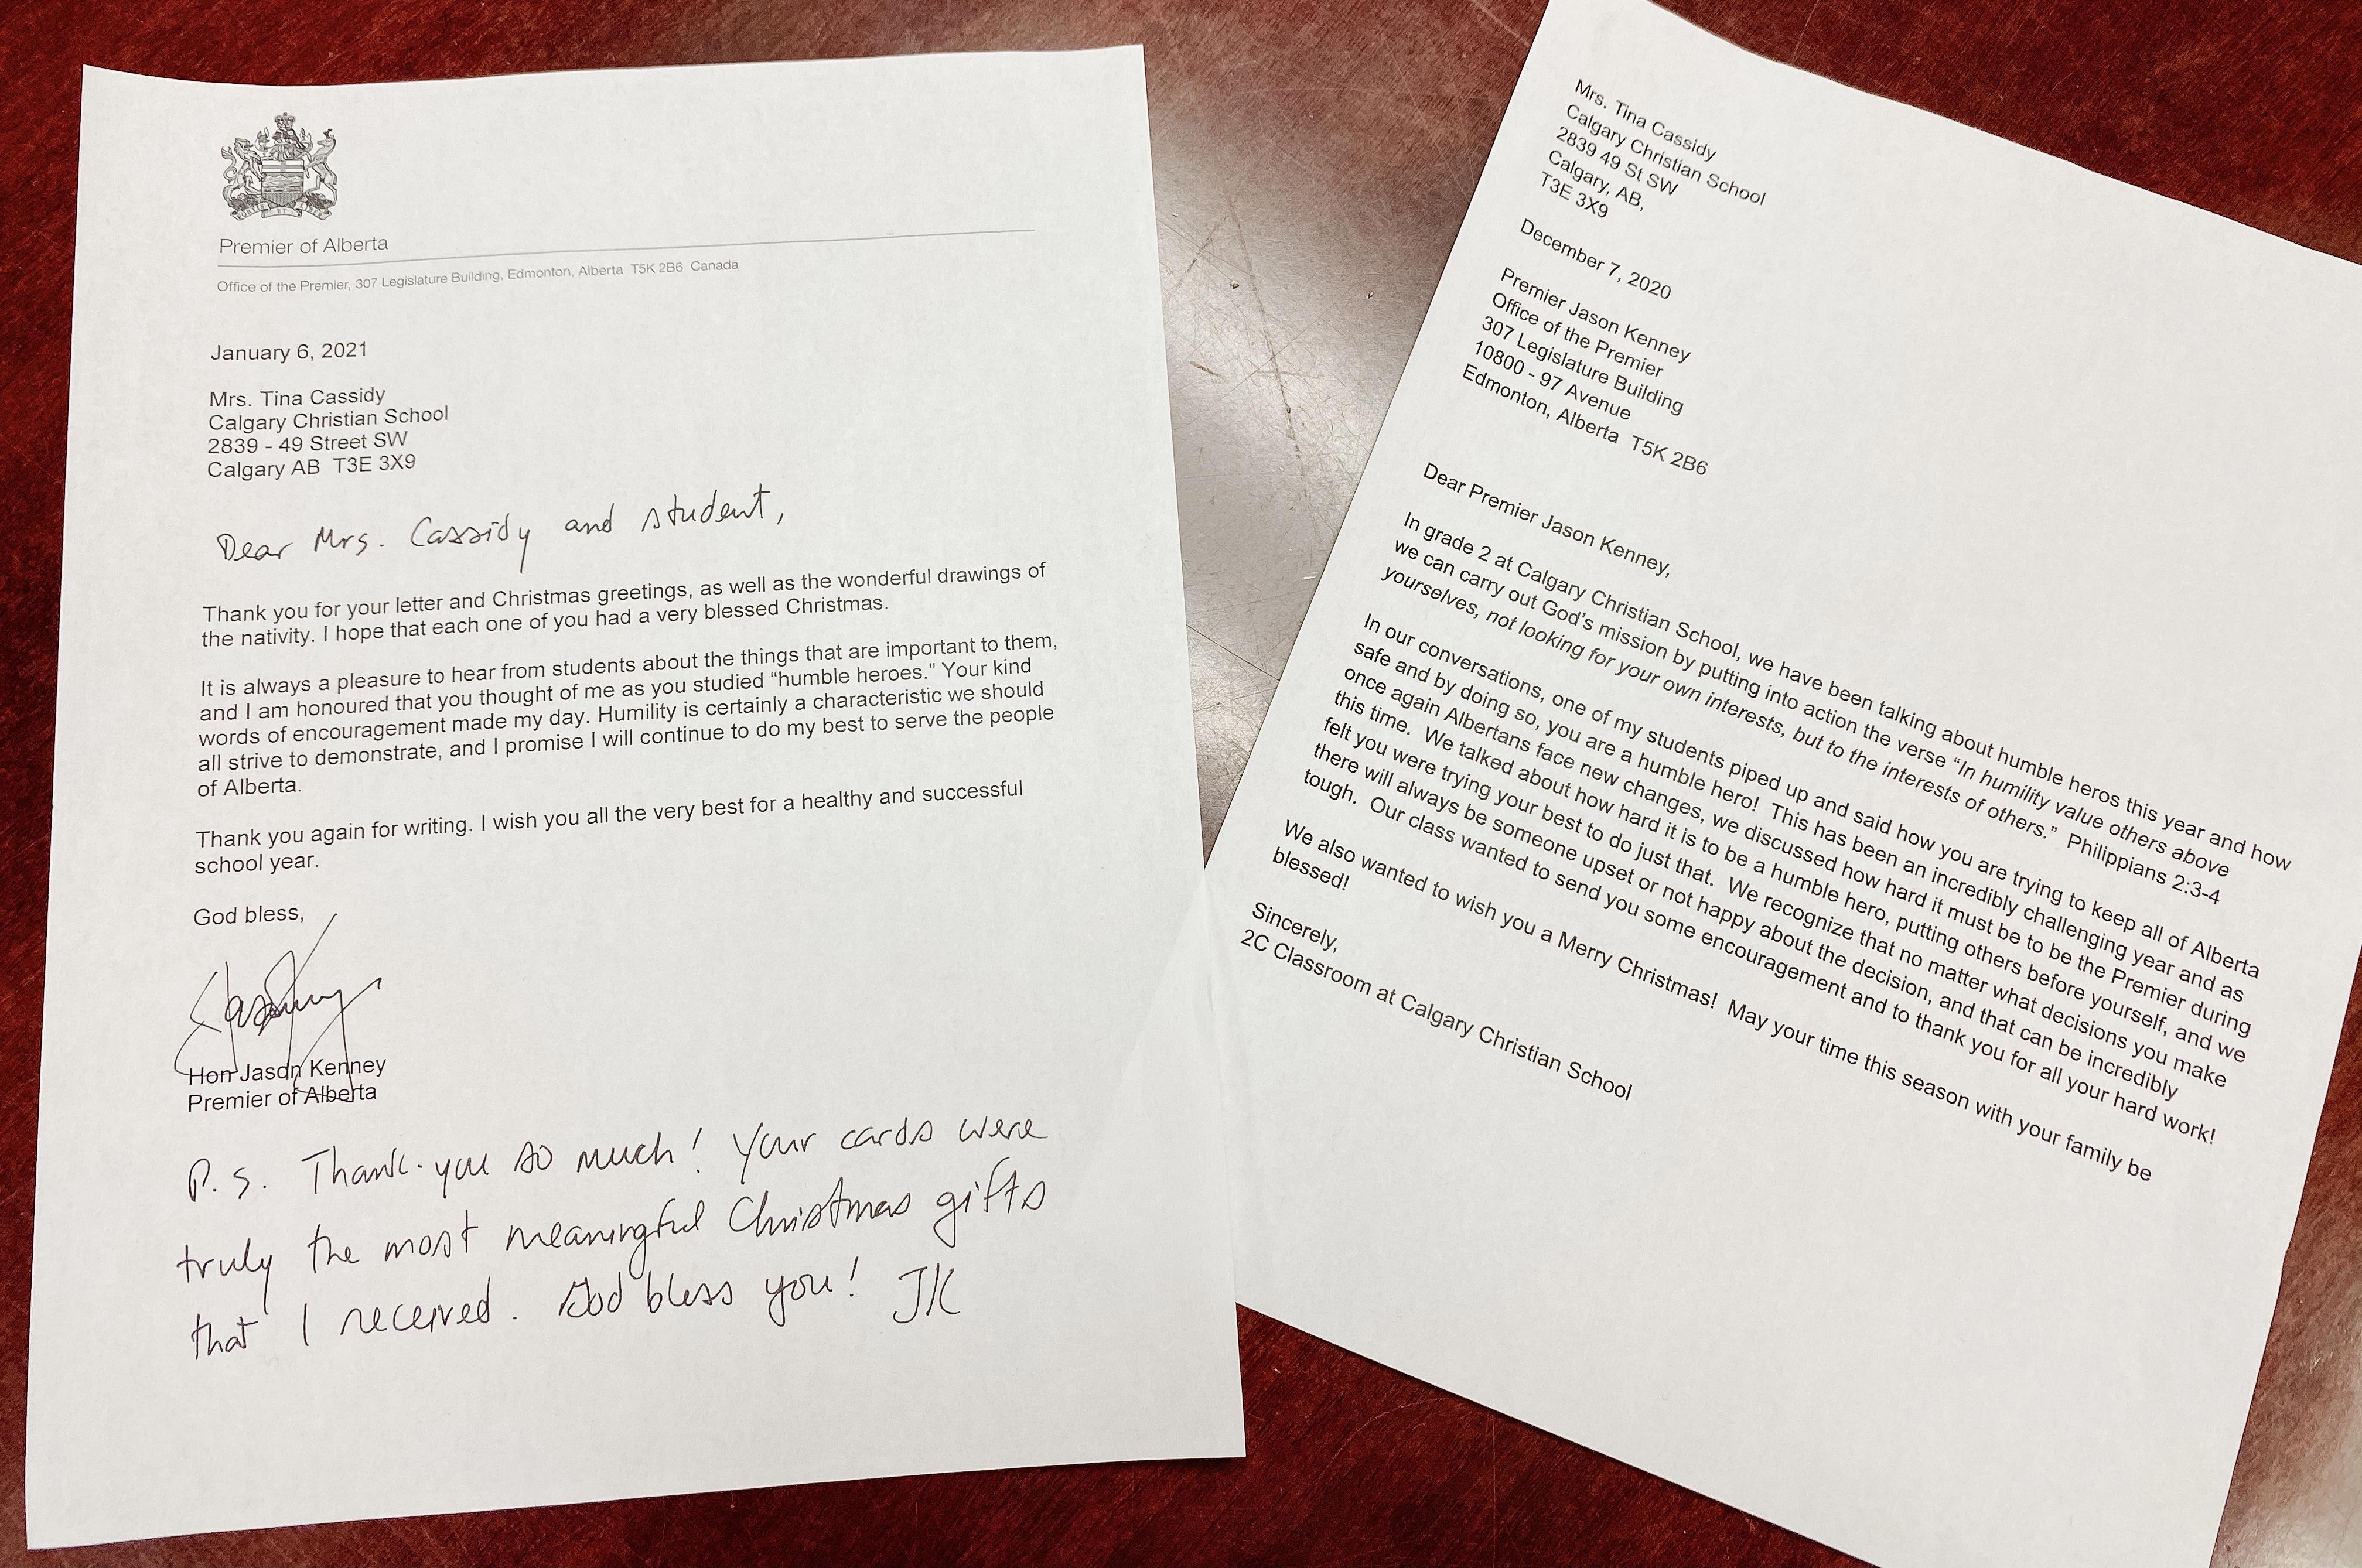 Premier of Alberta
Office of the Premier, 307 Legislature Building, Edmonton, Alberta T5K 2B6 Canada
January 6, 2021
Mrs. Tina Cassidy
Calgary Christian School
2839 - 49 Street SW
Calgary AB T3E 3X9
Dear Mrs. Cassidy and student,
Thank you for your letter and Christmas greetings, as well as the wonderful drawings of
the nativity. I hope that each one of you had a very blessed Christmas.
It is always a pleasure to hear from students about the things that are important to them,
and I am honoured that you thought of me as you studied “humble heroes.” Your kind
words of encouragement made my day. Humility is certainly a characteristic we should
all strive to demonstrate, and I promise I will continue to do my best to serve the people
of Alberta.
Thank you again for writing. I wish you all the very best for a healthy and successful
school year.
God bless,
Hon Jason Kenney
Premier of Alberta
P.S. Thank-you so much! Your cards were
truly the most meaningful Christmas gifts
that I received. God bless you! JK
Mrs. Tina Cassidy
Calgary Christian School
2839 49 St SW
Calgary, AB,
T3E 3X9
December 7, 2020
Premier Jason Kenney
Office of the Premier
307 Legislature Building
10800 - 97 Avenue
Edmonton, Alberta T5K 2B6
Dear Premier Jason Kenney,
In grade 2 at Calgary Christian School, we have been talking about humble heros this year and how
we can carry out God’s mission by putting into action the verse “In humility value others above
yourselves, not looking for your own interests, but to the interests of others.” Philippians 2:3-4
In our conversations, one of my students piped up and said how you are trying to keep all of Alberta
safe and by doing so, you are a humble hero! This has been an incredibly challenging year and as
once again Albertans face new changes, we discussed how hard it must be to be the Premier during
this time. We talked about how hard it is to be a humble hero, putting others before yourself, and we
felt you were trying your best to do just that. We recognize that no matter what decisions you make
there will always be someone upset or not happy about the decision, and that can be incredibly
tough. Our class wanted to send you some encouragement and to thank you for all your hard work!
We also wanted to wish you a Merry Christmas! May your time this season with your family be
blessed!
Sincerely,
2C Classroom at Calgary Christian School